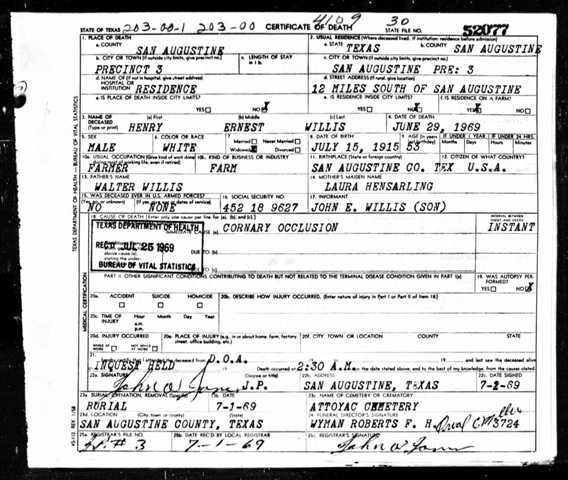 4109 30
STATE OF TEXAS 203-00-1 203-00 CERTIFICATE OF DEATH STATE FILE NO. 52077
1. PLACE OF DEATH 2. USUAL RESIDENCE (Where deceased lived. If institution: residence before admission)
a. COUNTY SAN AUGUSTINE a. STATE TEXAS b. COUNTY SAN AUGUSTINE
b. CITY OR TOWN (If outside city limits, give precinct no.) c. LENGTH OF STAY in 1 b. c. CITY OR TOWN (If outside city limits, give precinct no.)
PRECINCT 3 SAN AUGUSTINE PRE: 3
d. NAME OF (If not in hospital, give street address) HOSPITAL OR INSTITUTION RESIDENCE d. STREET ADDRESS (If rural, give location) 12 MILES SOUTH OF SAN AUGUSTINE
e. IS PLACE OF DEATH INSIDE CITY LIMITS? YES NO X e. IS RESIDENCE INSIDE CITY LIMITS? YES NO X f. IS RESIDENCE ON A FARM? YES X NO
3. NAME OF DECEASED (Type or print) (a) First (b) Middle (c) Last 4. DATE OF DEATH
HENRY ERNEST WILLIS JUNE 29, 1969
5. SEX 6. COLOR OR RACE 7. Married Never Married Widowed Divorced 8. DATE OF BIRTH 9. AGE IF UNDER 1 YEAR IF UNDER 24 HRS. Months Days Hours Minutes
MALE WHITE JULY 15, 1915 53
10a. USUAL OCCUPATION (Give kind of work done) 10b. KIND OF BUSINESS OR INDUSTRY 11. BIRTHPLACE (State or foreign country) 12. CITIZEN OF WHAT COUNTRY?
FARMER FARM SAN AUGUSTINE CO. TEX U.S.A.
13. FATHER'S NAME 14. MOTHER'S MAIDEN NAME
WALTER WILLIS LAURA HENSARLING
15. WAS DECEASED EVER IN U.S. ARMED FORCES? 16. SOCIAL SECURITY NO. 17. INFORMANT
NO NONE 452 18 9627 JOHN E. WILLIS (SON)
18. CAUSE OF DEATH (Enter only one cause per line for (a), (b), and (c).) INTERVAL BETWEEN ONSET AND DEATH
TEXAS DEPARTMENT OF HEALTH
CORNARY OCCLUSION INSTANT
REC'D JUL 25 1969
DUE TO (b)
BUREAU OF VITAL STATISTICS
PART II. OTHER SIGNIFICANT CONDITIONS CONTRIBUTING TO DEATH BUT NOT RELATED TO THE TERMINAL DISEASE CONDITION GIVEN IN PART I(a) 19. WAS AUTOPSY PERFORMED? YES NO X
20a. ACCIDENT SUICIDE HOMICIDE 20b. DESCRIBE HOW INJURY OCCURRED. (Enter nature of injury in Part I or Part II of item 18.)
20c. TIME OF INJURY Hour Month Day Year a.m. p.m.
20d. INJURY OCCURRED WHILE AT WORK NOT WHILE AT WORK 20e. PLACE OF INJURY (e.g., in or about home, farm, factory, street, office building, etc.) 20f. CITY, TOWN OR LOCATION COUNTY STATE
21. I hereby certify that I attended the deceased from D.O.A. 19 and last saw the deceased alive
INQUEST HELD Death occurred at 2:30 A.M. on the date stated above, and to the best of my knowledge, from the causes stated.
22a. SIGNATURE (Degree or title) 22b. ADDRESS 22c. DATE SIGNED
J.P. SAN AUGUSTINE, TEXAS 7-2-69
23a. BURIAL, CREMATION, REMOVAL (Specify) 23b. DATE 23c. NAME OF CEMETERY OR CREMATORY
BURIAL 7-1-69 ATTOYAC CEMETERY
23d. LOCATION (City, town or county) (State) 24. FUNERAL DIRECTOR'S SIGNATURE
SAN AUGUSTINE COUNTY, TEXAS WYMAN ROBERTS F. H. 3724
25a. REGISTRAR'S FILE NO. 25b. DATE REC'D BY LOCAL REGISTRAR 25c. REGISTRAR'S SIGNATURE
# 3 7-1-69
TEXAS DEPARTMENT OF HEALTH - BUREAU OF VITAL STATISTICS
MEDICAL CERTIFICATION